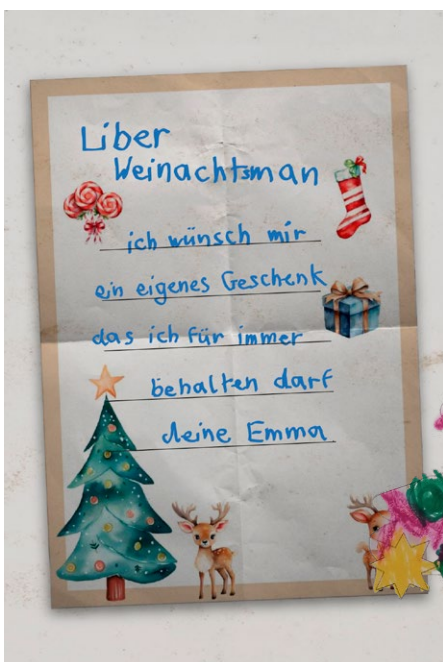 Liber
Weinachtsman
ich wünsch mir
ein eigenes Geschenk
das ich für immer
behalten darf
deine Emma